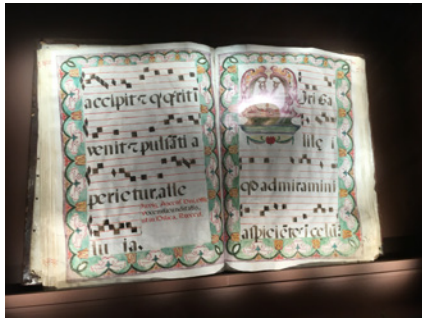 accipit ⁊ q̃ q̃riti
venit ⁊ pulsãti a
perietur. alle
lu ia.
iri ga
lile i
qo admiramini
aspiciẽtes i celũ